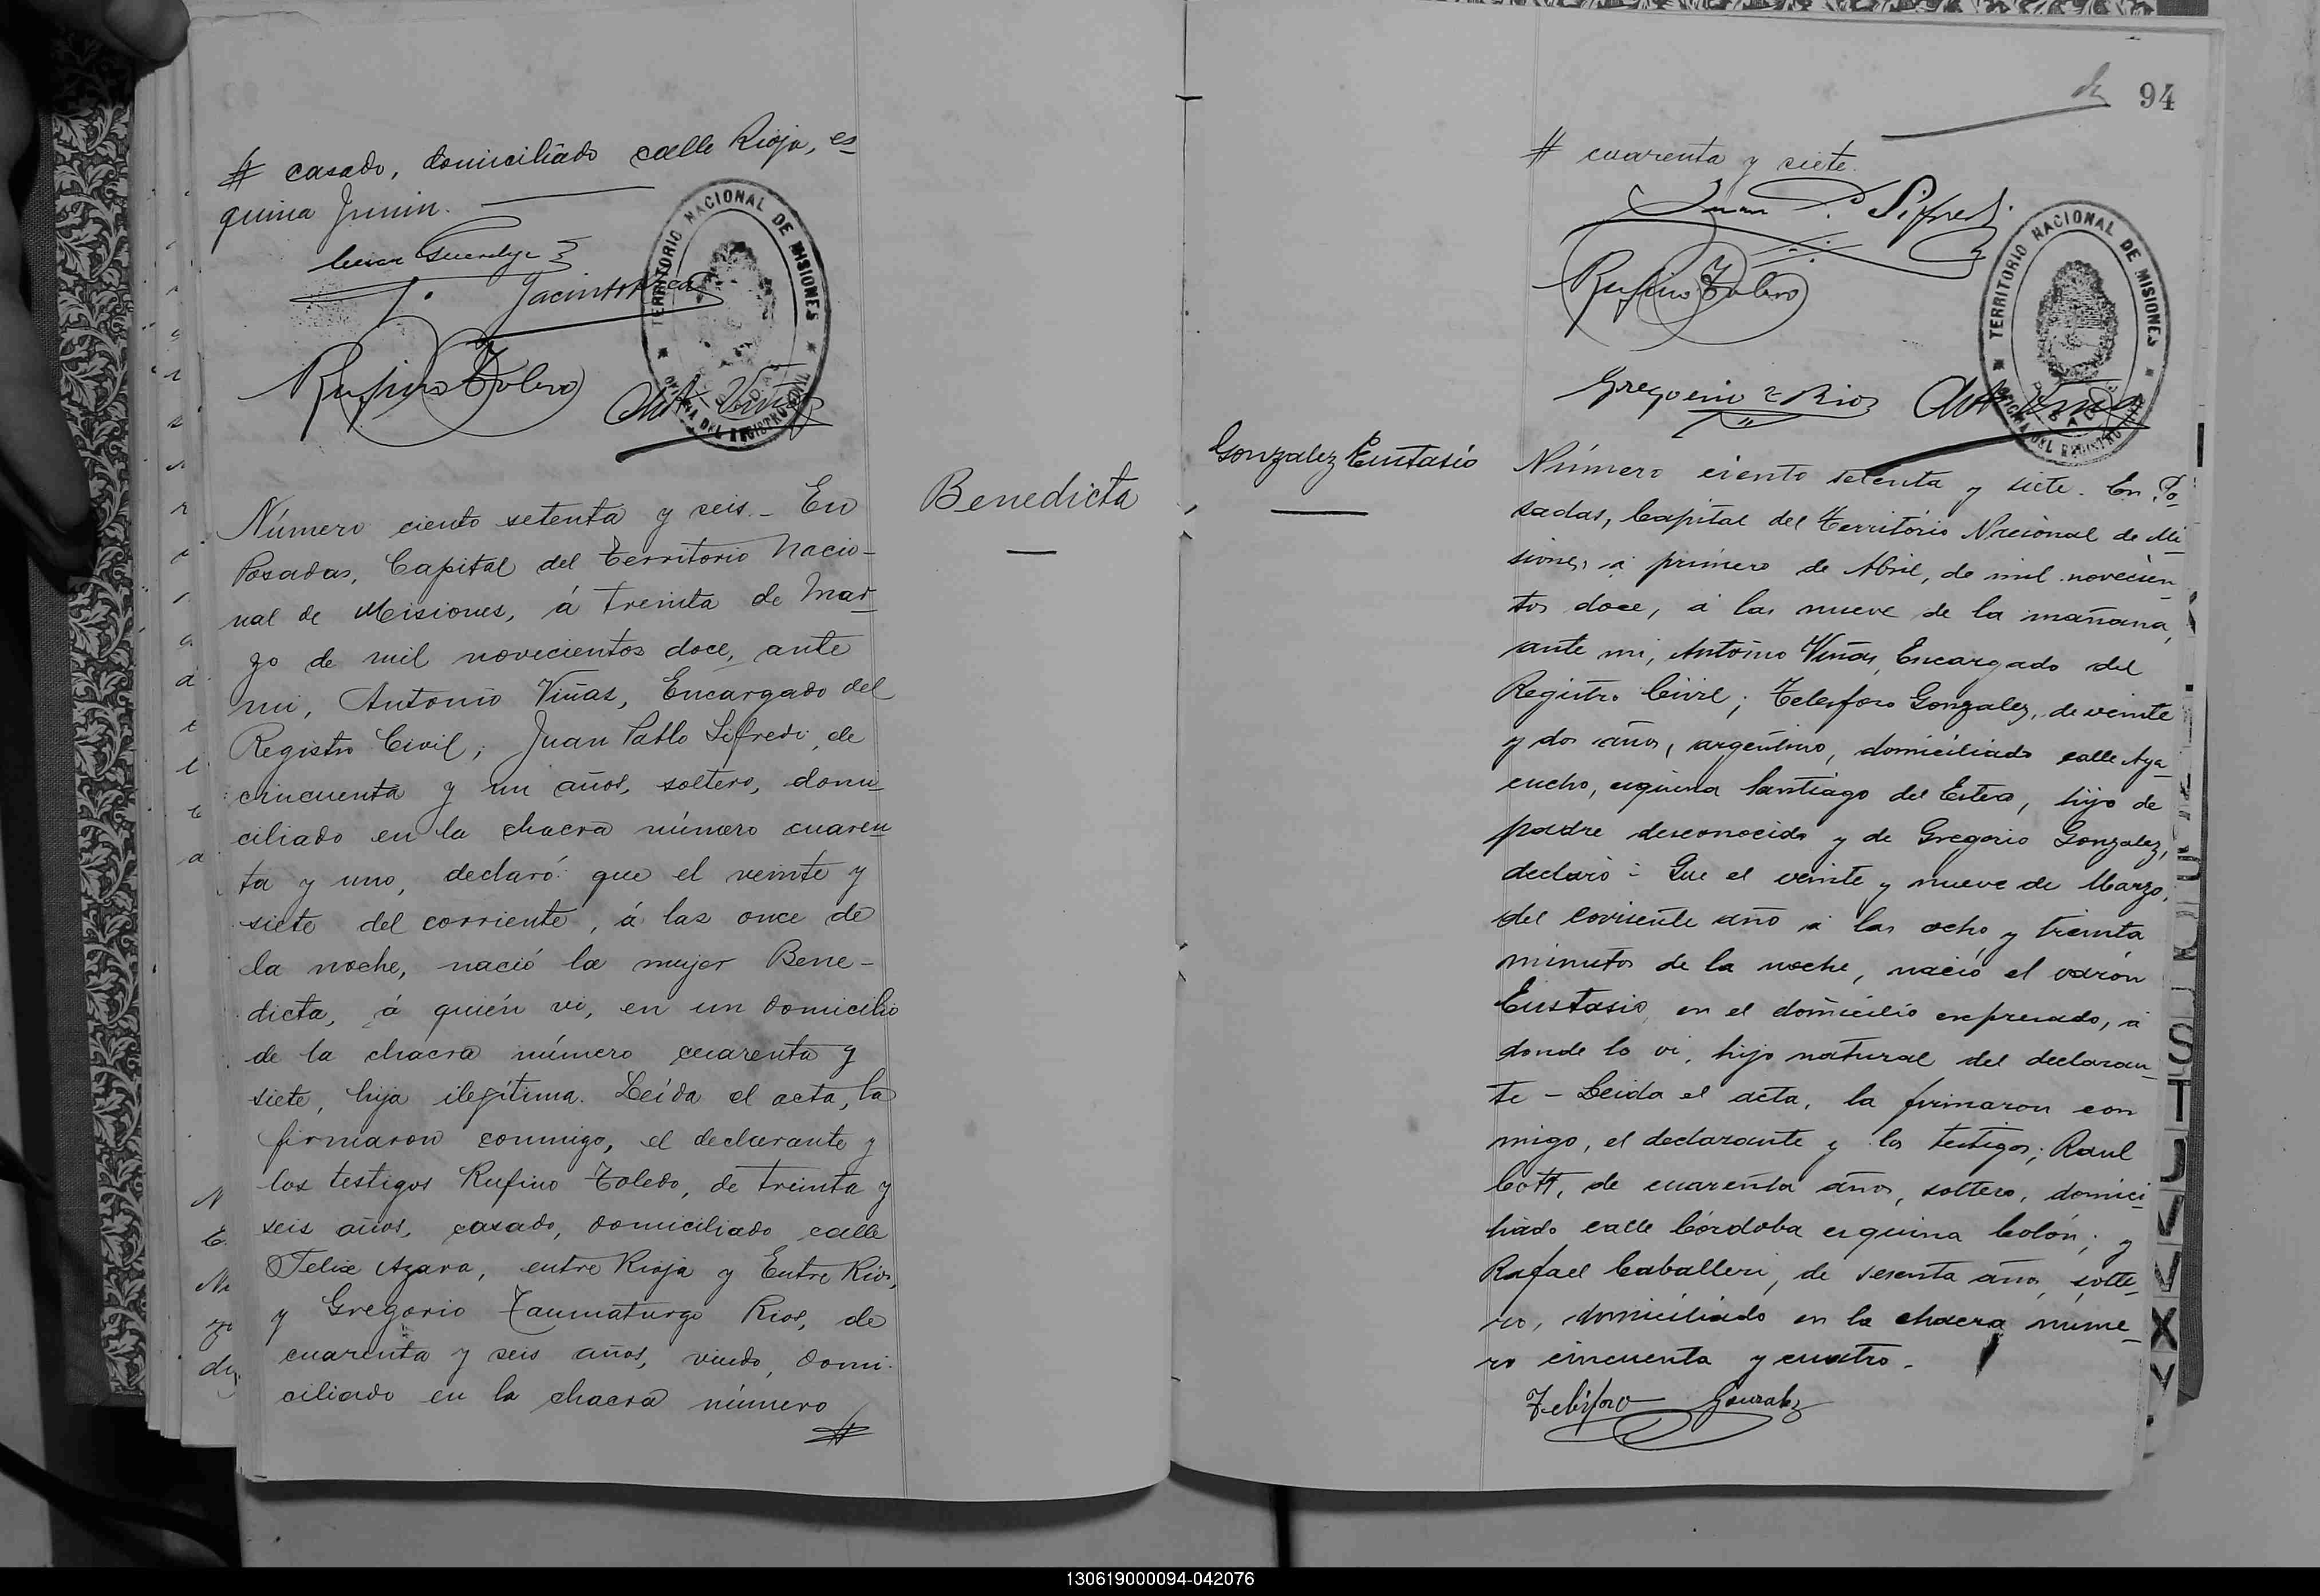 # casado, domiciliado calle Rioja, es
quina Junin.
Jacinto
Rufino Toledo
Ant Viñas
TERRITORIO NACIONAL DE MISIONES
OFICINA DEL REGISTRO CIVIL
Benedicta
Número ciento setenta y seis. En
Posadas, Capital del Territorio Nacio-
nal de Misiones, á treinta de Mar-
zo de mil novecientos doce, ante
mi, Antonio Viñas, Encargado del
Registro Civil; Juan Pablo Sifredi, de
cincuenta y un años, soltero, domi-
ciliado en la chacra número cuaren-
ta y uno, declaró: que el veinte y
siete del corriente, á las once de
la noche, nació la mujer Bene-
dicta, á quién vi, en un domicilio
de la chacra número cuarenta y
siete, hija ilegítima. Leída el acta, la
firmaron conmigo, el declarante y
los testigos Rufino Toledo, de treinta y
seis años, casado, domiciliado calle
Felix Azara, entre Rioja y Entre Rios,
y Gregorio Taumaturgo Rios, de
cuarenta y seis años, viudo, domi-
ciliado en la chacra número
#
94
# cuarenta y siete.
Juan P. Sifredi
Rufino Toledo
Gregorio T Rios
Ant Viñas
TERRITORIO NACIONAL DE MISIONES
OFICINA DEL REGISTRO CIVIL
POSADAS
Gonzalez Eustasio
Número ciento setenta y siete. En Po
sadas, Capital del Territorio Nacional de Mi
siones, á primero de Abril, de mil novecien
tos doce, á las nueve de la mañana,
ante mi, Antonio Viñas, Encargado del
Registro Civil; Telesforo Gonzalez, de veinte
y dos años, argentino, domiciliado calle Aya
cucho, esquina Santiago del Estero, hijo de
padre desconocido y de Gregoria Gonzalez,
declaró: Que el veinte y nueve de Marzo,
del corriente año á las ocho y treinta
minutos de la noche, nació el varón
Eustasio, en el domicilio expresado, á
donde lo vi, hijo natural del declaran-
te - Leida el acta, la firmaron con
migo, el declarante y los testigos; Raul
Cott, de cuarenta años, soltero, domici
liado calle Córdoba esquina Colón; y
Rafael Caballeri, de sesenta años, solte-
ro, domiciliado en la chacra núme-
ro cincuenta y cuatro.
Telésforo Gonzalez
S
T
J
V
V
X
Y
130619000094-042076